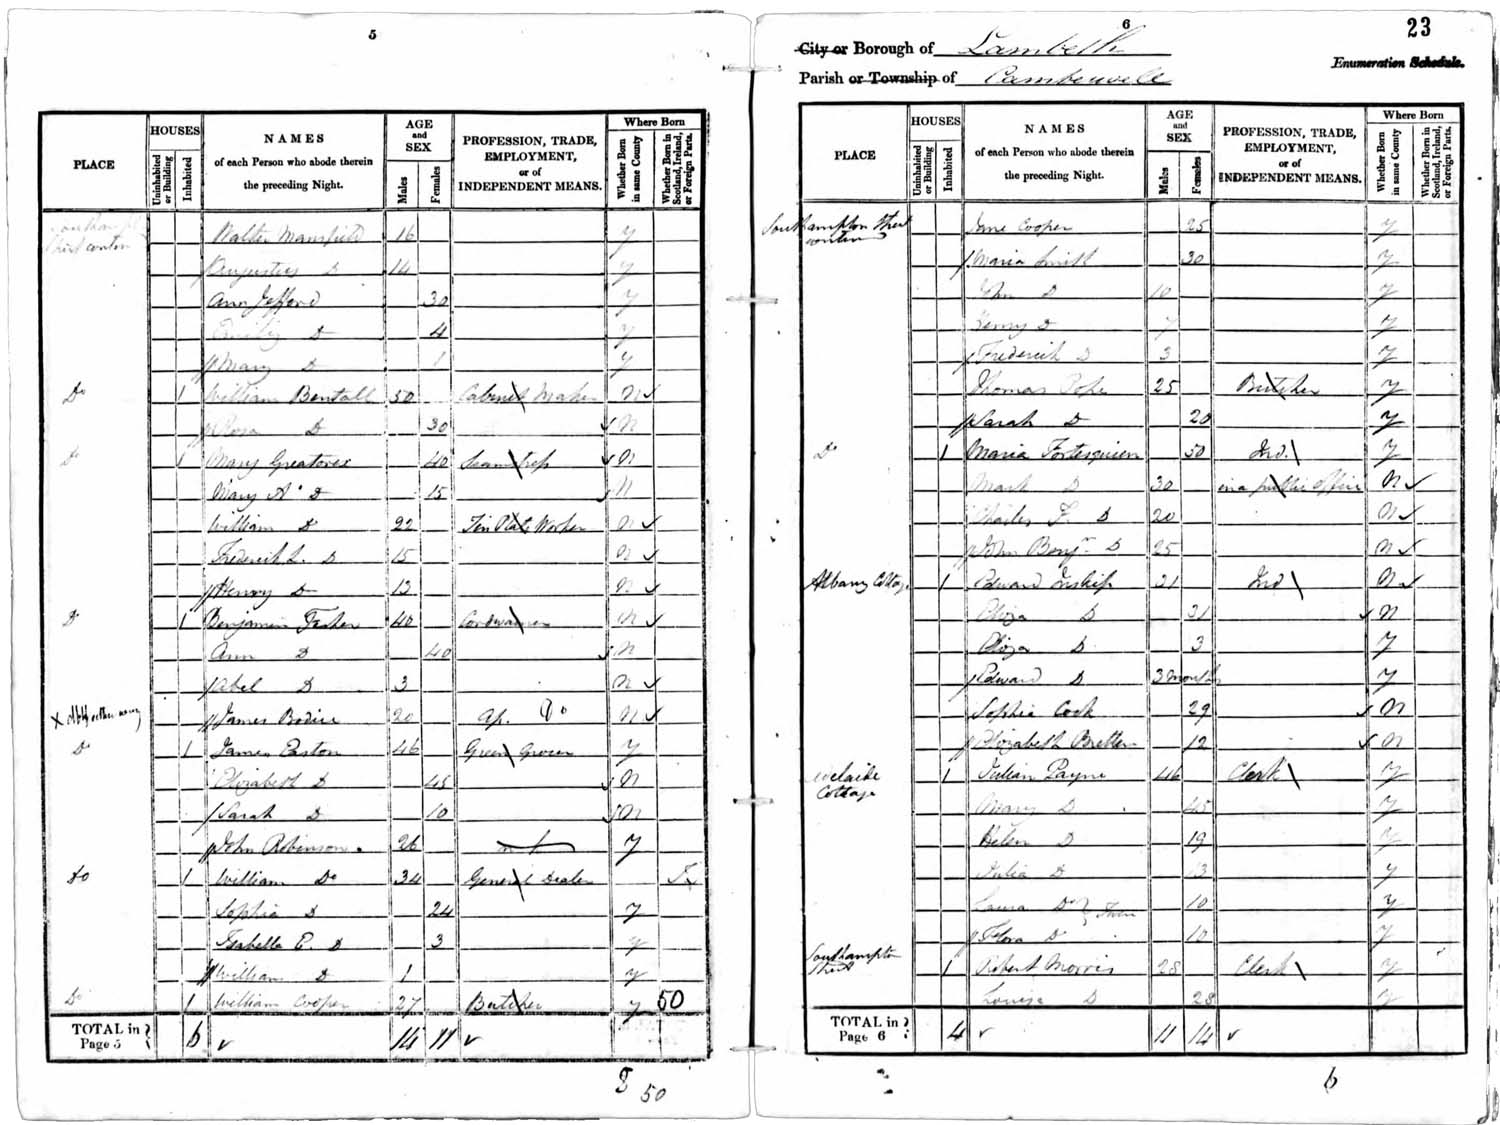 5
PLACE
HOUSES
Uninhabited or Building
Inhabited
NAMES
of each Person who abode therein
the preceding Night.
AGE
and
SEX
Males
Females
PROFESSION, TRADE,
EMPLOYMENT,
or of
INDEPENDENT MEANS.
Where Born
Whether Born in same County
Whether Born in Scotland, Ireland, or Foreign Parts.
Walter Mansfield 16 y
Augustus D 14 y
Ann Jefford 30 y
Emily D 4 y
Mary D 1 y
Do 1 William Bentall 50 Cabinet Maker N
Rosa D 30 N
Do 1 Mary Greatorex 40 Seamstress N
Mary A D 15 N
William D 22 Tin Plate Worker N
Frederick L. D 15 N
Henry D 13 N
D 1 Benjamin Fisher 40 Cordwainer N
Ann D 40 N
Abel D 3 N
James Bodice 20 Ap. Do N
Do 1 James Easton 46 Green Grocer y
Elizabeth D 45 N
Sarah D 10 N
John Robinson 26 y
Do 1 William Do 34 General Dealer
Sophia D 24 y
Isabella E. D 3 y
William D 1 y
Do 1 William Cooper 27 Butcher y 50
TOTAL in Page 5 6 14 11
50
6
23
City or Borough of Lambeth
Enumeration Schedule.
Parish or Township of Camberwell
PLACE
HOUSES
Uninhabited or Building
Inhabited
NAMES
of each Person who abode therein
the preceding Night.
AGE
and
SEX
Males
Females
PROFESSION, TRADE,
EMPLOYMENT,
or of
INDEPENDENT MEANS.
Where Born
Whether Born in same County
Whether Born in Scotland, Ireland, or Foreign Parts.
Southampton Street Jane Cooper 25 y
Maria Smith 30 y
John D 10 y
Henry D 7 y
Frederick D 3 y
Thomas Pope 25 Butcher y
Sarah D 20 y
Do 1 Maria 50 Ind. y
Mark D 30 in a public office N
Charles F. D 20 N
John Benjn. D 25 N
Albany Cottage 1 Edward Inskip 31 Ind N
Eliza D 31 N
Eliza D 3 y
Edward D 3 months y
Sophia Cook 29 N
Elizabeth 12 N
Adelaide Cottage 1 Julian Payne 46 Clerk y
Mary D 45 y
Helen D 19 y
Julia D 13 y
Laura Do 10 y
Flora D 10 y
Southampton Street 1 Robert Morris 28 Clerk y
Louisa D 28 y
TOTAL in Page 6 4 11 14
6